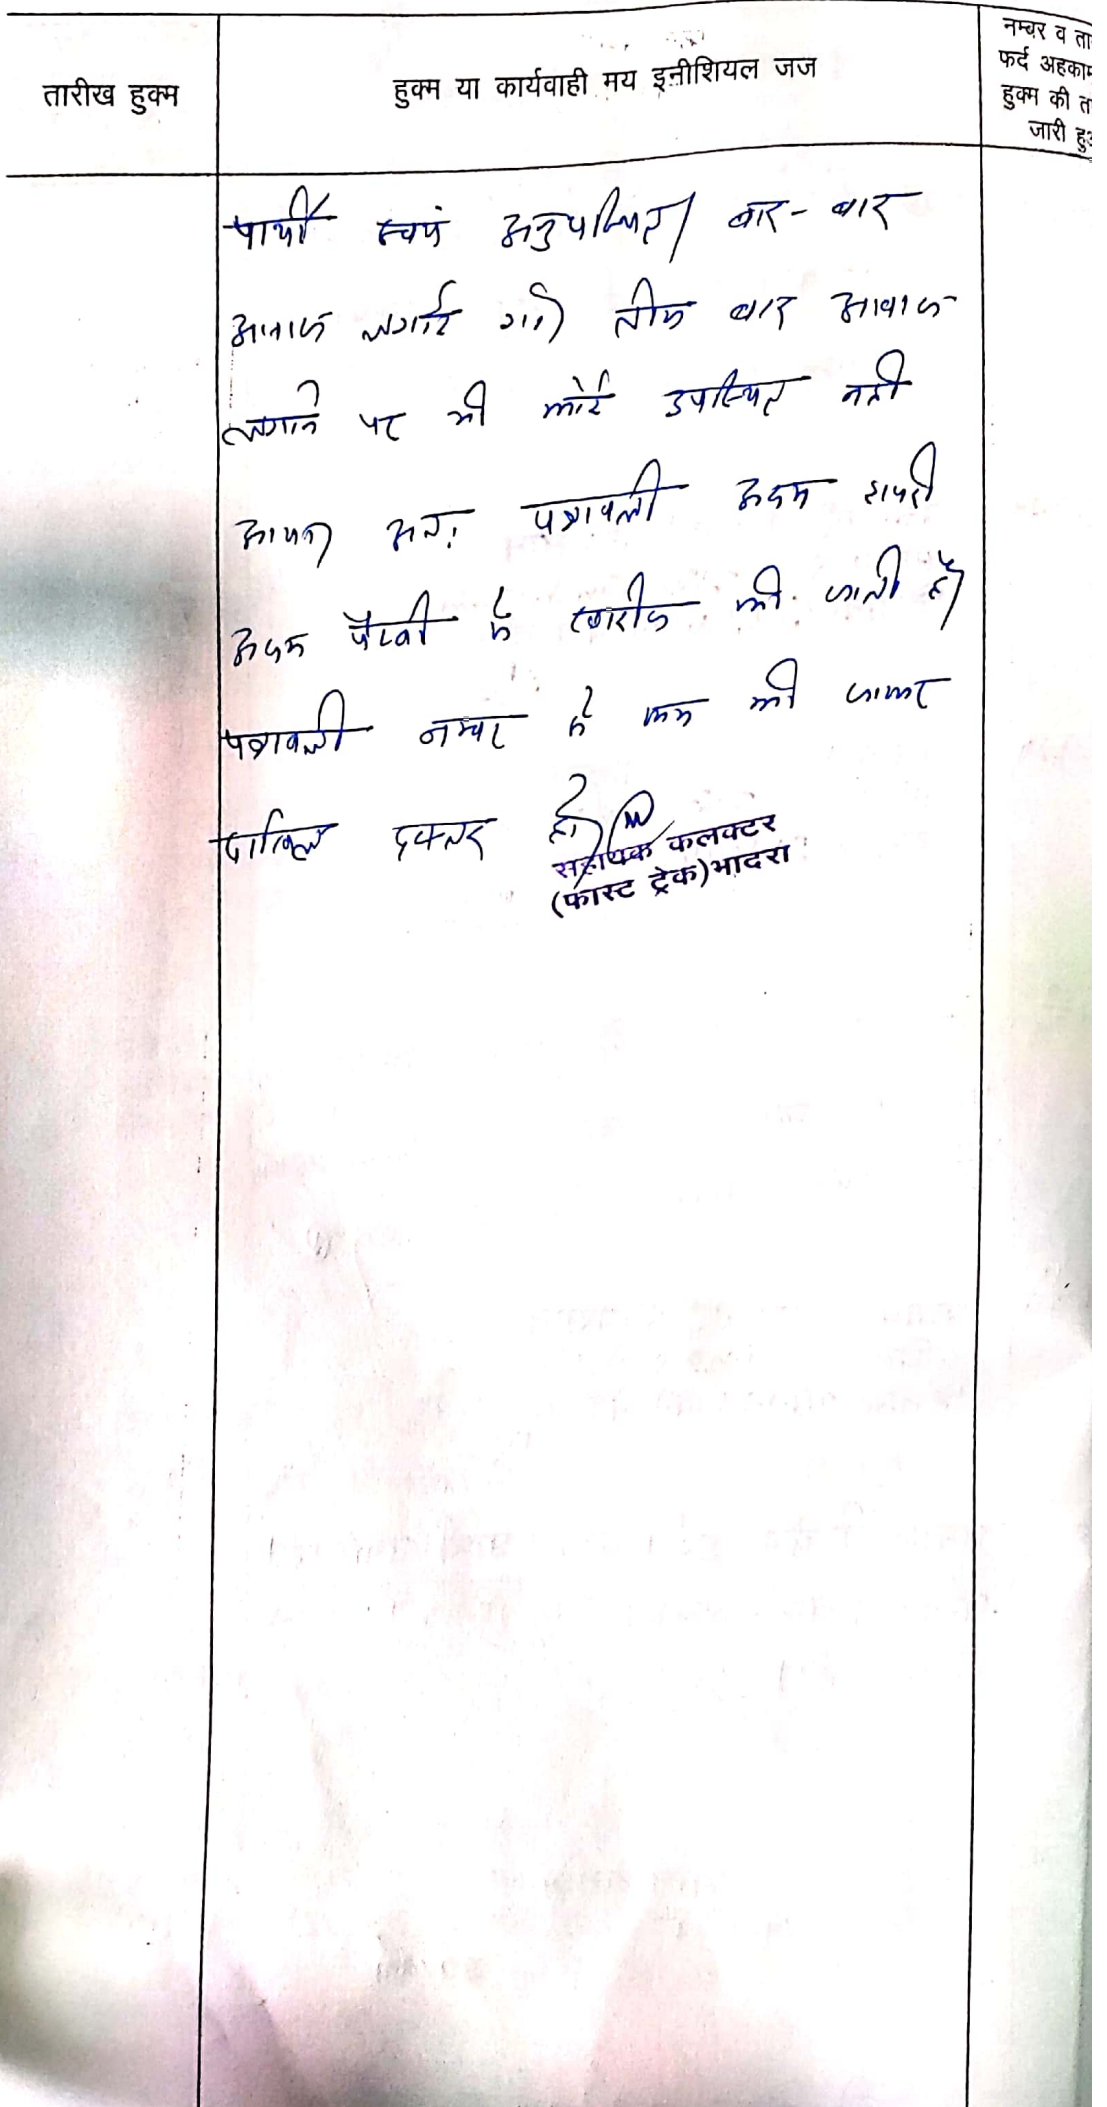 तारीख हुक्म
हुक्म या कार्यवाही मय इनीशियल जज
नम्बर व ता
फर्द अहकाम
हुक्म की त
जारी हु
प्रार्थी स्वयं अनुपस्थित। बार-बार
आवाज लगाई गई। तीन बार आवाज
लगाने पर भी कोई उपस्थित नही
आया। अतः पत्रावली अदम हाजरी
अदम पैरवी में खारीज की जाती है।
पत्रावली नम्बर से कम की जाकर
दाखिल दफ्तर हो।
सहायक कलक्टर
(फास्ट ट्रेक) भादरा